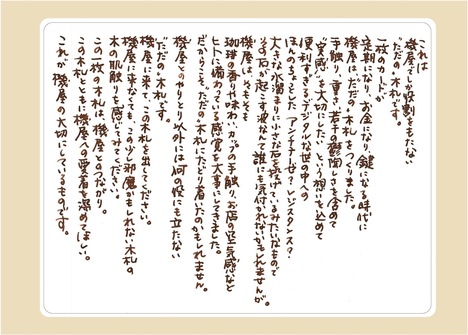 これは
機屋でしか役割をもたない
"ただの"木札です。
一枚のカードが
定期になり、お金になり、鍵になる時代に
機屋は"ただの"木札をつくりました。
手触り、重さ、若干の鬱陶しさを含めて
"実感"を大切にしたいという想いを込めて
便利すぎるデジタルな世の中への
ほんのちょっとしたアンチテーゼ?レジスタンス?
大きな水溜まりに小さな石を投げているみたいなもので
その石が起こす波なんて誰にも気付かれないかもしれませんが。
機屋は、そもそも
珈琲の香りや味わい、カップの手触り、お店の空気感など
ヒトに備わっている感覚を大事にしてきました。
だからこそ"ただの"木札にたどり着いたのかもしれません。
機屋とのやりとり以外には何の役にも立たない
"ただの"木札です。
機屋に来て、この木札を出してください。
機屋に来なくても、この少し邪魔かもしれない木札の
木の肌触りを感じてみてください。
この一枚の木札は、機屋とのつながり。
この木札とともに機屋への愛着を深めてほしい。
これが機屋の大切にしているものです。